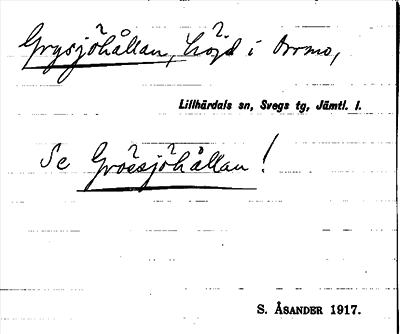 Grysjöhållan, höjd i Orrmo,
Lillhärdals sn, Svegs tg, Jämtl. l.
Se Grössjöhållan!
S. ÅSANDER 1917.